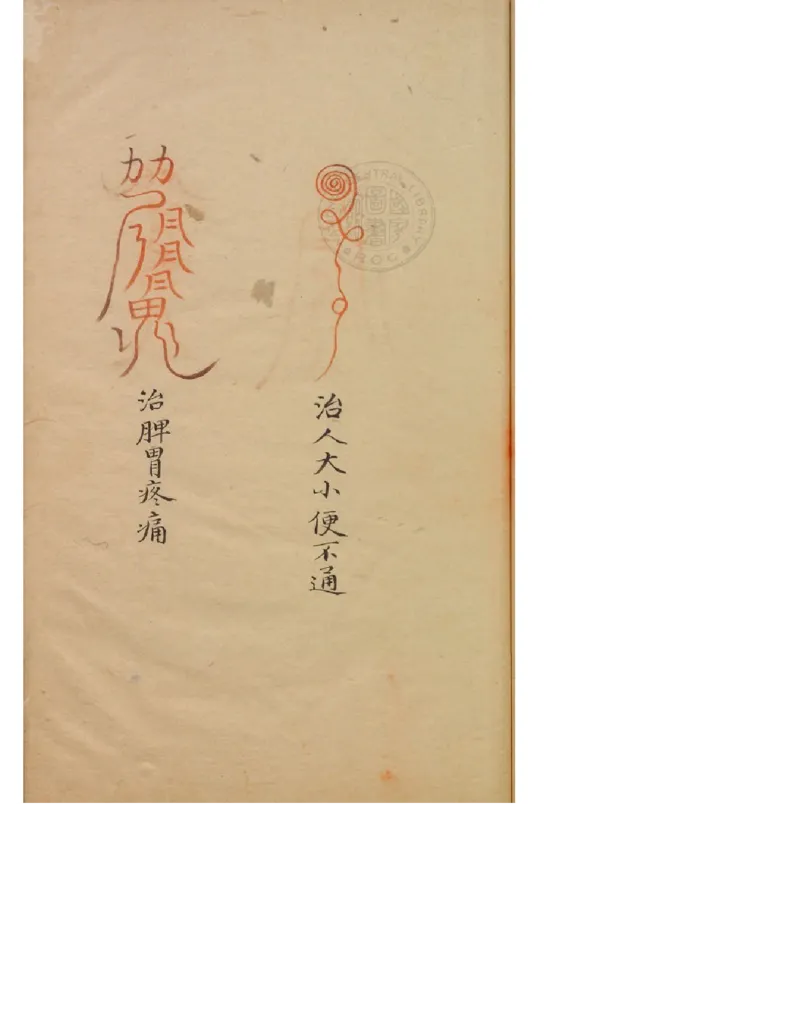 治人大小便不通
治脾胃疼痛